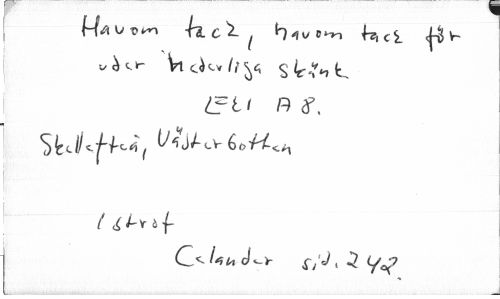 Havom tack, havom tack för
eder hederliga skänk
LEI A 8.
Skellefteå, Västerbotten
1 strof
Celander sid. 242.